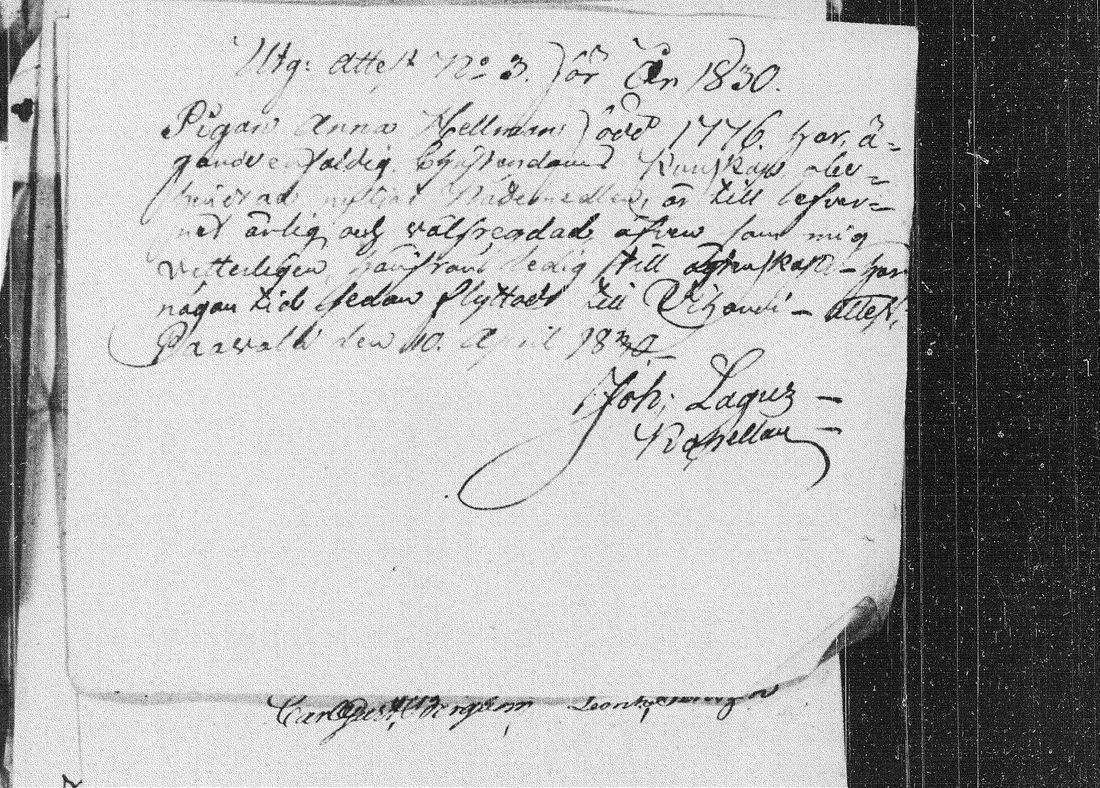 Utg: Attest No 3. för År 1830.
Pigan Anna Hellman född 1776. har, ä-
gande enfaldig Christendoms Kunskap, ober-
nyttjat Nådemedlen, är till lefver-
net ärlig och välfrejdad, äfven som mig
vetterligen, hinderslös ledig till ägtenskap - har
någon tid sedan flyttadt till Vihandi - Attest,
Paavola den 10. April 1830.
Joh; Lagus -
Kapellan -
Carl